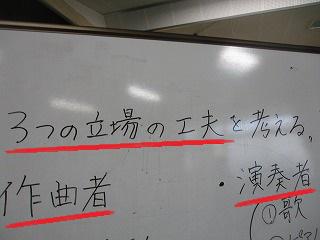 3つの立場の工夫を考える。
作曲者
・演奏者
(①歌